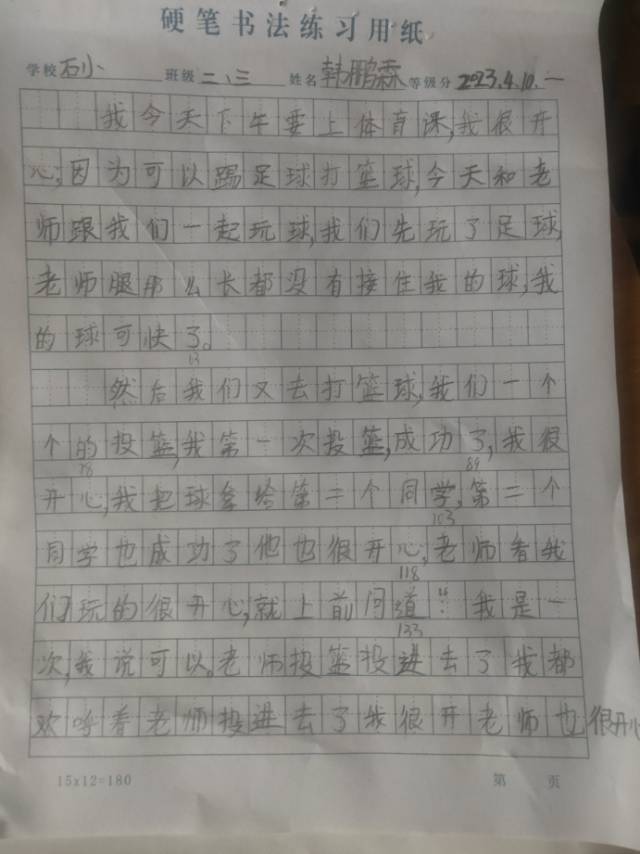 硬笔书法练习用纸
学校石小 班级二、三 姓名韩鹏霖 等级分2023.4.10.一
我今天下午要上体育课,我很开
心,因为可以踢足球打篮球,今天和老
师跟我们一起玩球,我们先玩了足球,
老师腿那么长都没有接住我的球,我
的球可快了。
13
然后我们又去打篮球,我们一个
个的投篮,我第一次投篮,成功了,我很
78 89
开心,我把球给第二个同学,第二个
103
同学也成功了他也很开心,老师看我
118
们玩的很开心,就上前问道:“我是一
133
次,我说可以。老师投篮投进去了我都
欢呼着老师投进去了我很开老师也很开心
15x12=180 第 页